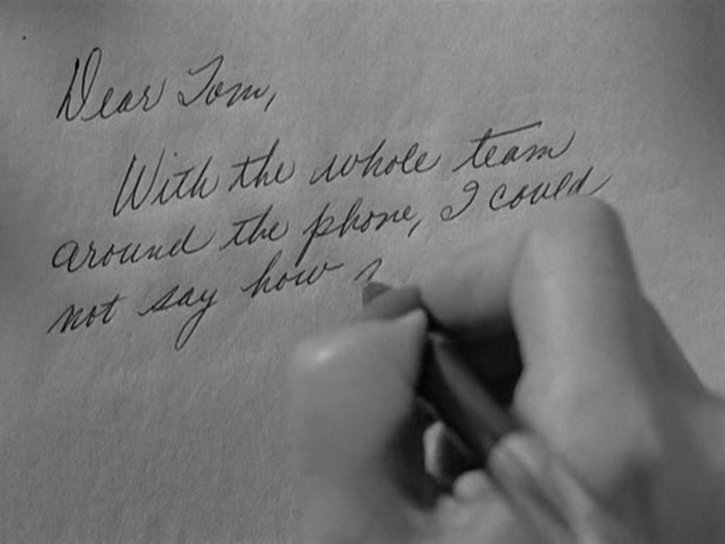 Dear Tom,
With the whole team
around the phone, I could
not say how